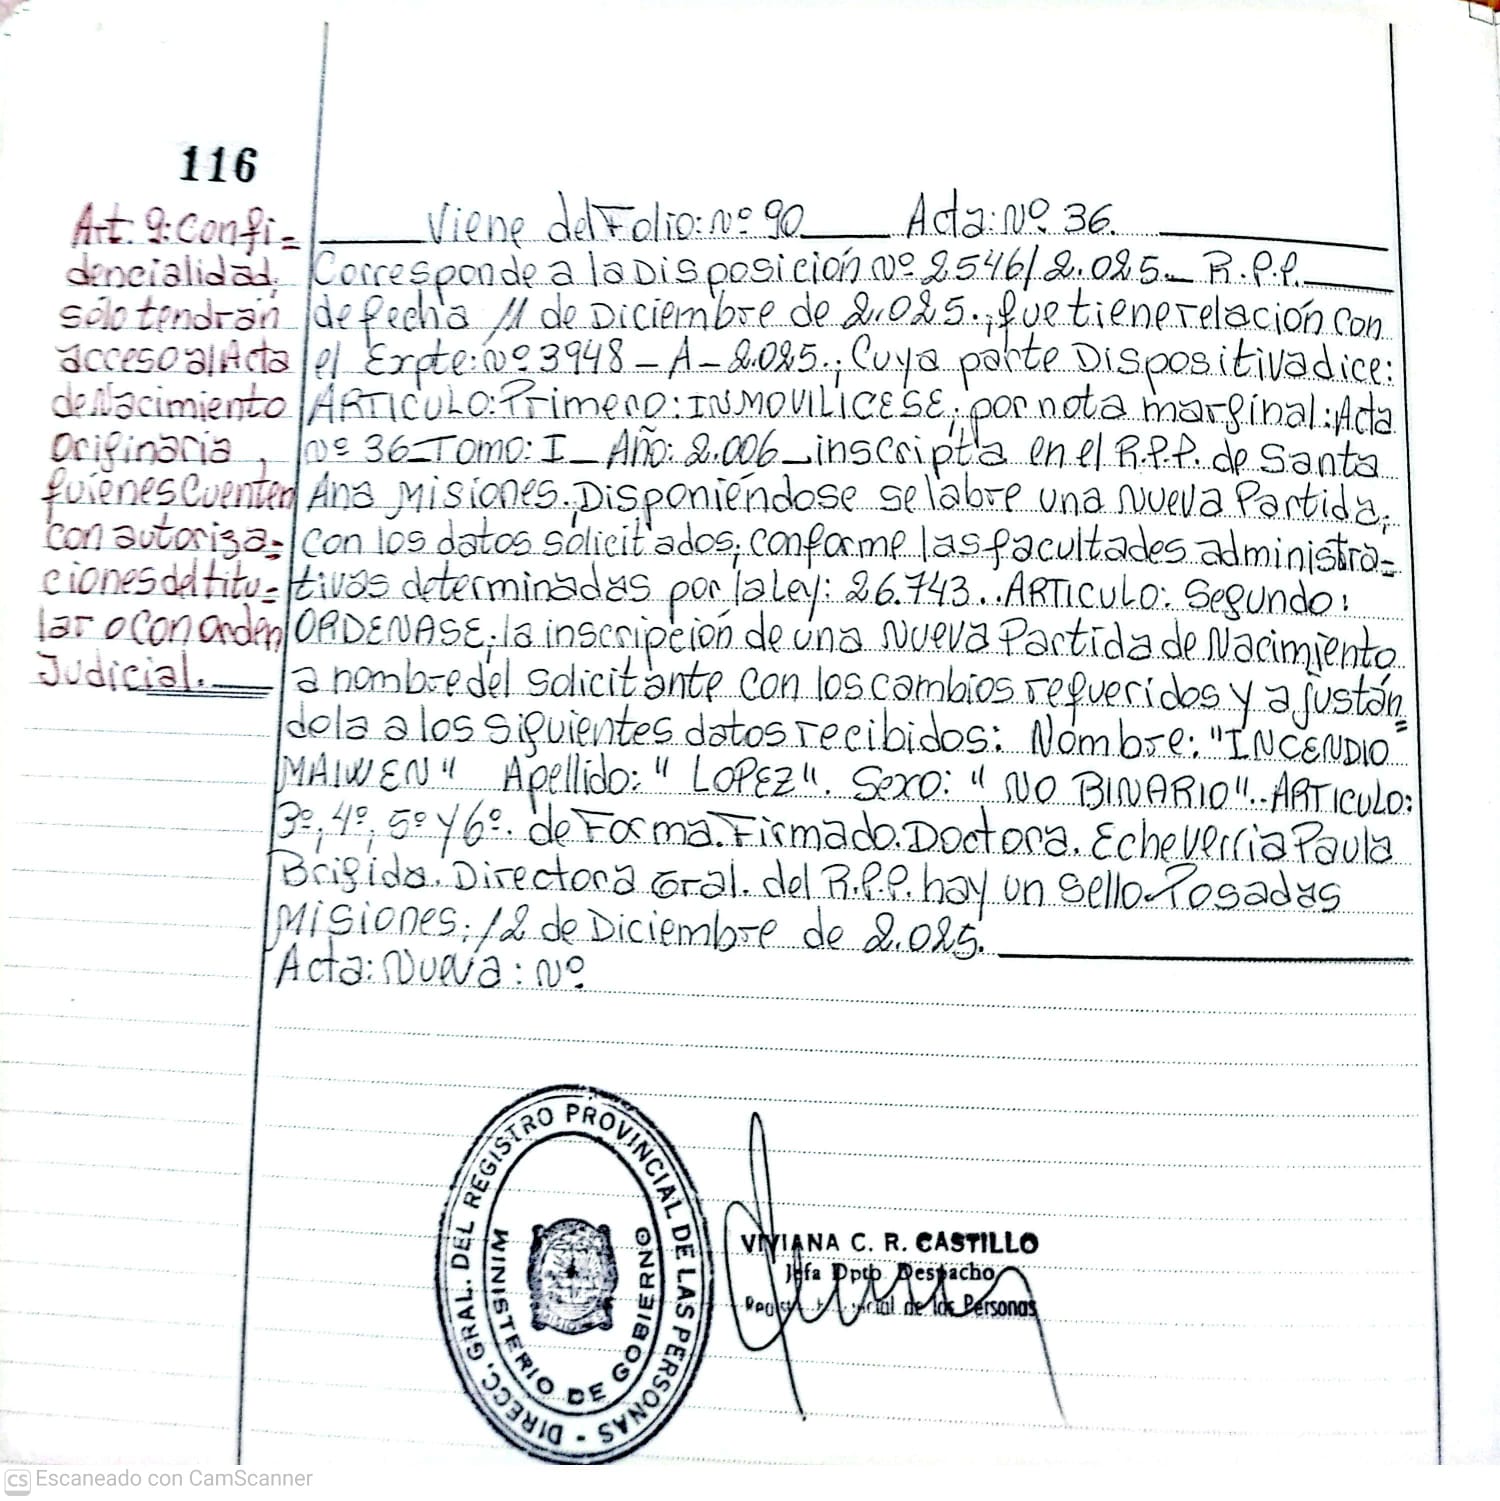 116
Art. 9: Confi=
dencialidad,
sólo tendrán
acceso al Acta
de Nacimiento
Originaria,
quienes Cuenten
con autoriza=
ciones del titu=
lar o Con Orden
Judicial.
Viene del Folio: Nº 90 Acta: Nº 36.
Corresponde a la Disposición Nº 2546/2.025._ R.P.P.
de fecha 11 de Diciembre de 2.025., que tiene relación con
el Expte: Nº 3948 - A - 2.025.; Cuya parte Dispositiva dice:
ARTICULO: Primero: INMOVILICESE; por nota marginal: Acta
Nº 36_Tomo: I_ Año: 2.006_inscripta en el R.P.P. de Santa
Ana Misiones. Disponiéndose se labre una Nueva Partida;
con los datos solicitados; conforme las facultades administra=
tivas determinadas por la Ley: 26.743.. ARTICULO: Segundo:
ORDENASE; la inscripción de una Nueva Partida de Nacimiento
a nombre del solicitante con los cambios requeridos y ajustán=
dola a los siguientes datos recibidos: Nombre: "INCENDIO
MAIWEN" Apellido: "LOPEZ". Sexo: "NO BINARIO".. ARTICULO:
3º, 4º, 5º y 6º. de Forma. Firmado. Doctora. Echeverria Paula
Brigida. Directora Gral. del R.P.P. hay un sello. Posadas
Misiones; 12 de Diciembre de 2.025.
Acta: Nueva: Nº
DIRECC. GRAL. DEL REGISTRO PROVINCIAL DE LAS PERSONAS -
MINISTERIO DE GOBIERNO
VIVIANA C. R. CASTILLO
Jefa Dpto Despacho
de las Personas
CS Escaneado con CamScanner